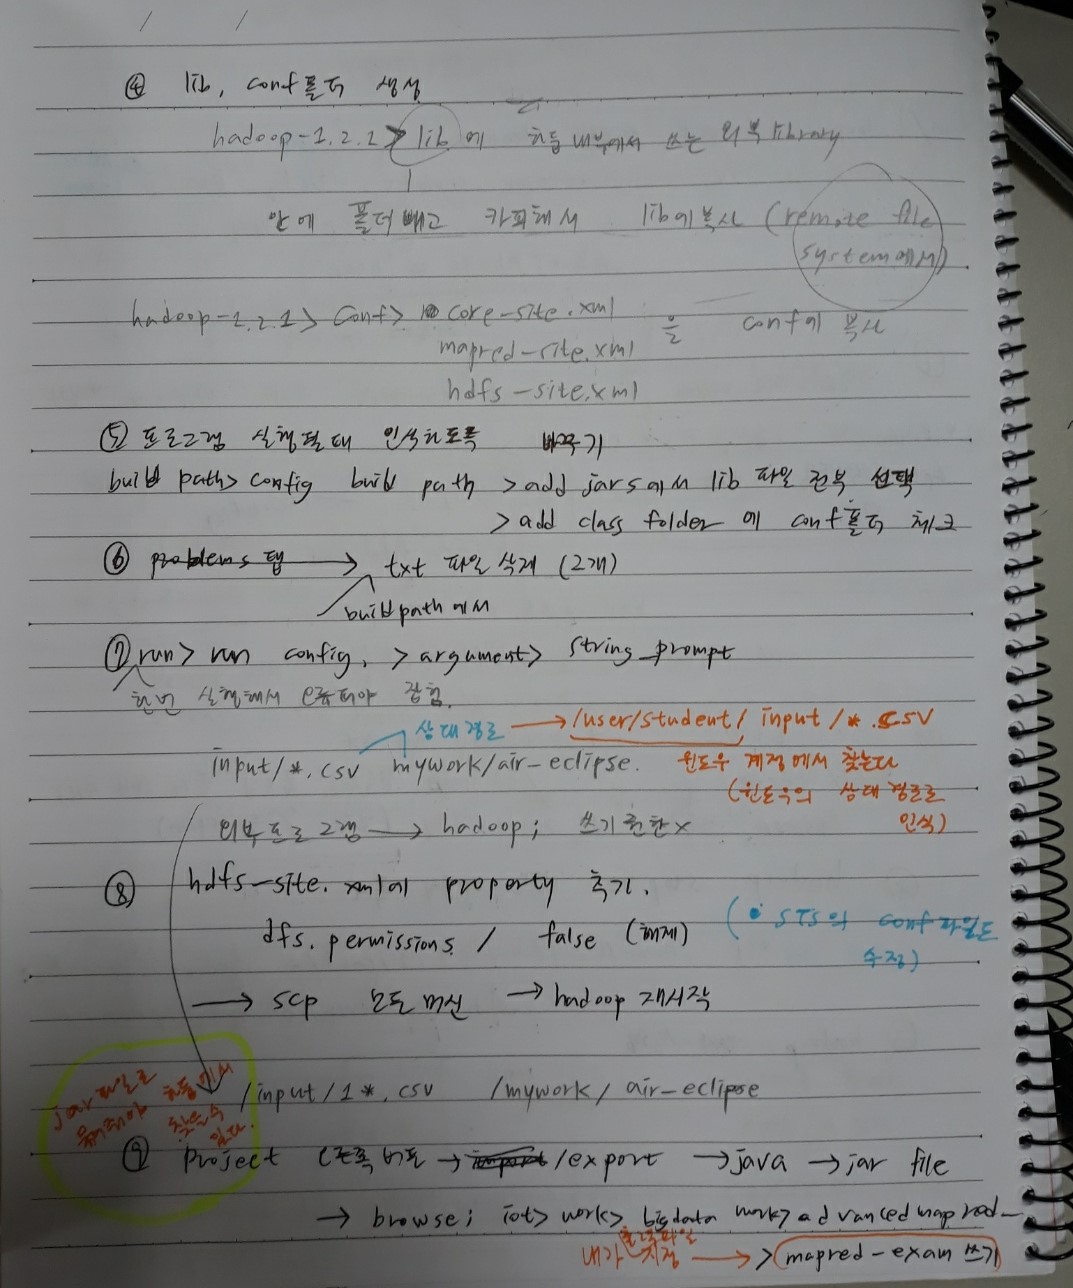 ④ lib, conf폴더 생성
hadoop-1.2.1 > lib에 하둡 내부에서 쓰는 외부 library
안에 폴더 빼고 카피해서 lib에 복사 (remote file
system에서)
hadoop-1.2.1 > conf > core-site.xml 을 conf에 복사
mapred-site.xml
hdfs-site.xml
⑤ 프로그램 실행될때 인식하도록 바꾸기
build path > config build path > add jars에서 lib 파일 전부 선택
> add class folder 에 conf폴더 체크
⑥ problems 탭 → txt 파일 삭제 (2개)
build path에서
⑦ run > run config. > argument > string_prompt
한번 실행해서 에러떠야 잡힘.
상대경로 → /user/student/ input/*.csv
input/*.csv mywork/air-eclipse. 윈도우 계정에서 찾는다
(윈도우의 상대경로로
인식)
외부프로그램 → hadoop; 쓰기권한x
⑧ hdfs-site.xml에 property 추가.
dfs.permissions / false (해제)
(• STS의 conf파일도
수정)
→ scp 모든 머신 → hadoop 재시작
jar파일로 하둡에서
찾을수
있다.
/input/1*.csv /mywork/ air-eclipse
⑨ project 오른쪽 버튼 → /export → java → jar file
→ browse; iot > work > bigdata work > advanced mapred-
내가 지정 → > mapred-exam 쓰기